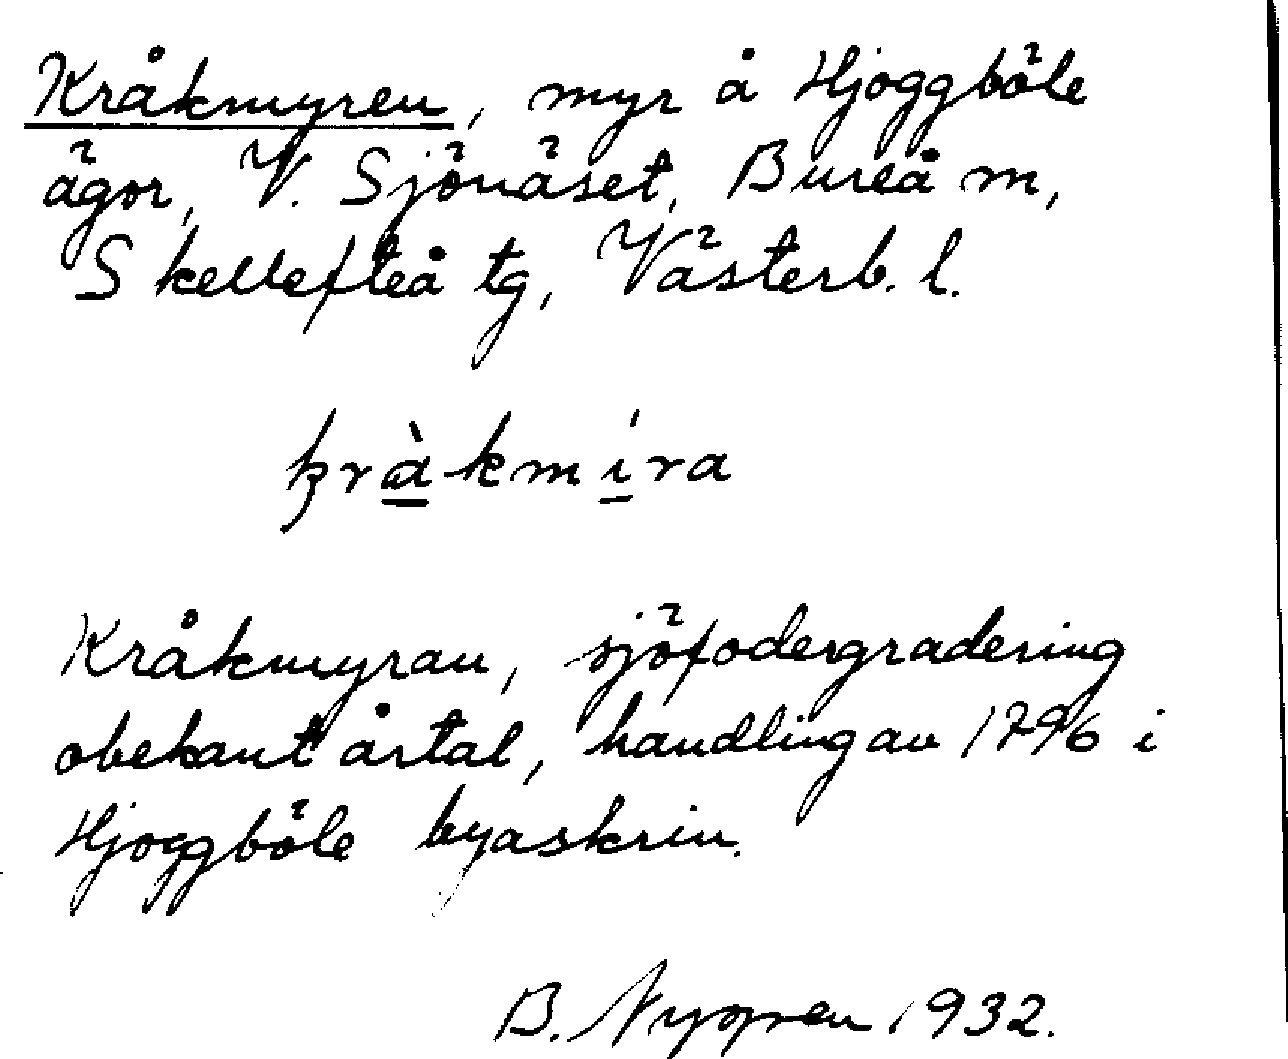 Kråkmyren, myr å Hjoggböle
ägor, V. Sjönäset, Bureå m,
Skellefteå tg, Västerb. l.
krà̱kmí̱ra
Kråkmyran, sjöfodergradering
obekant årtal, handling av 1796 i
Hjoggböle byaskrin.
B. Nygren 1932.